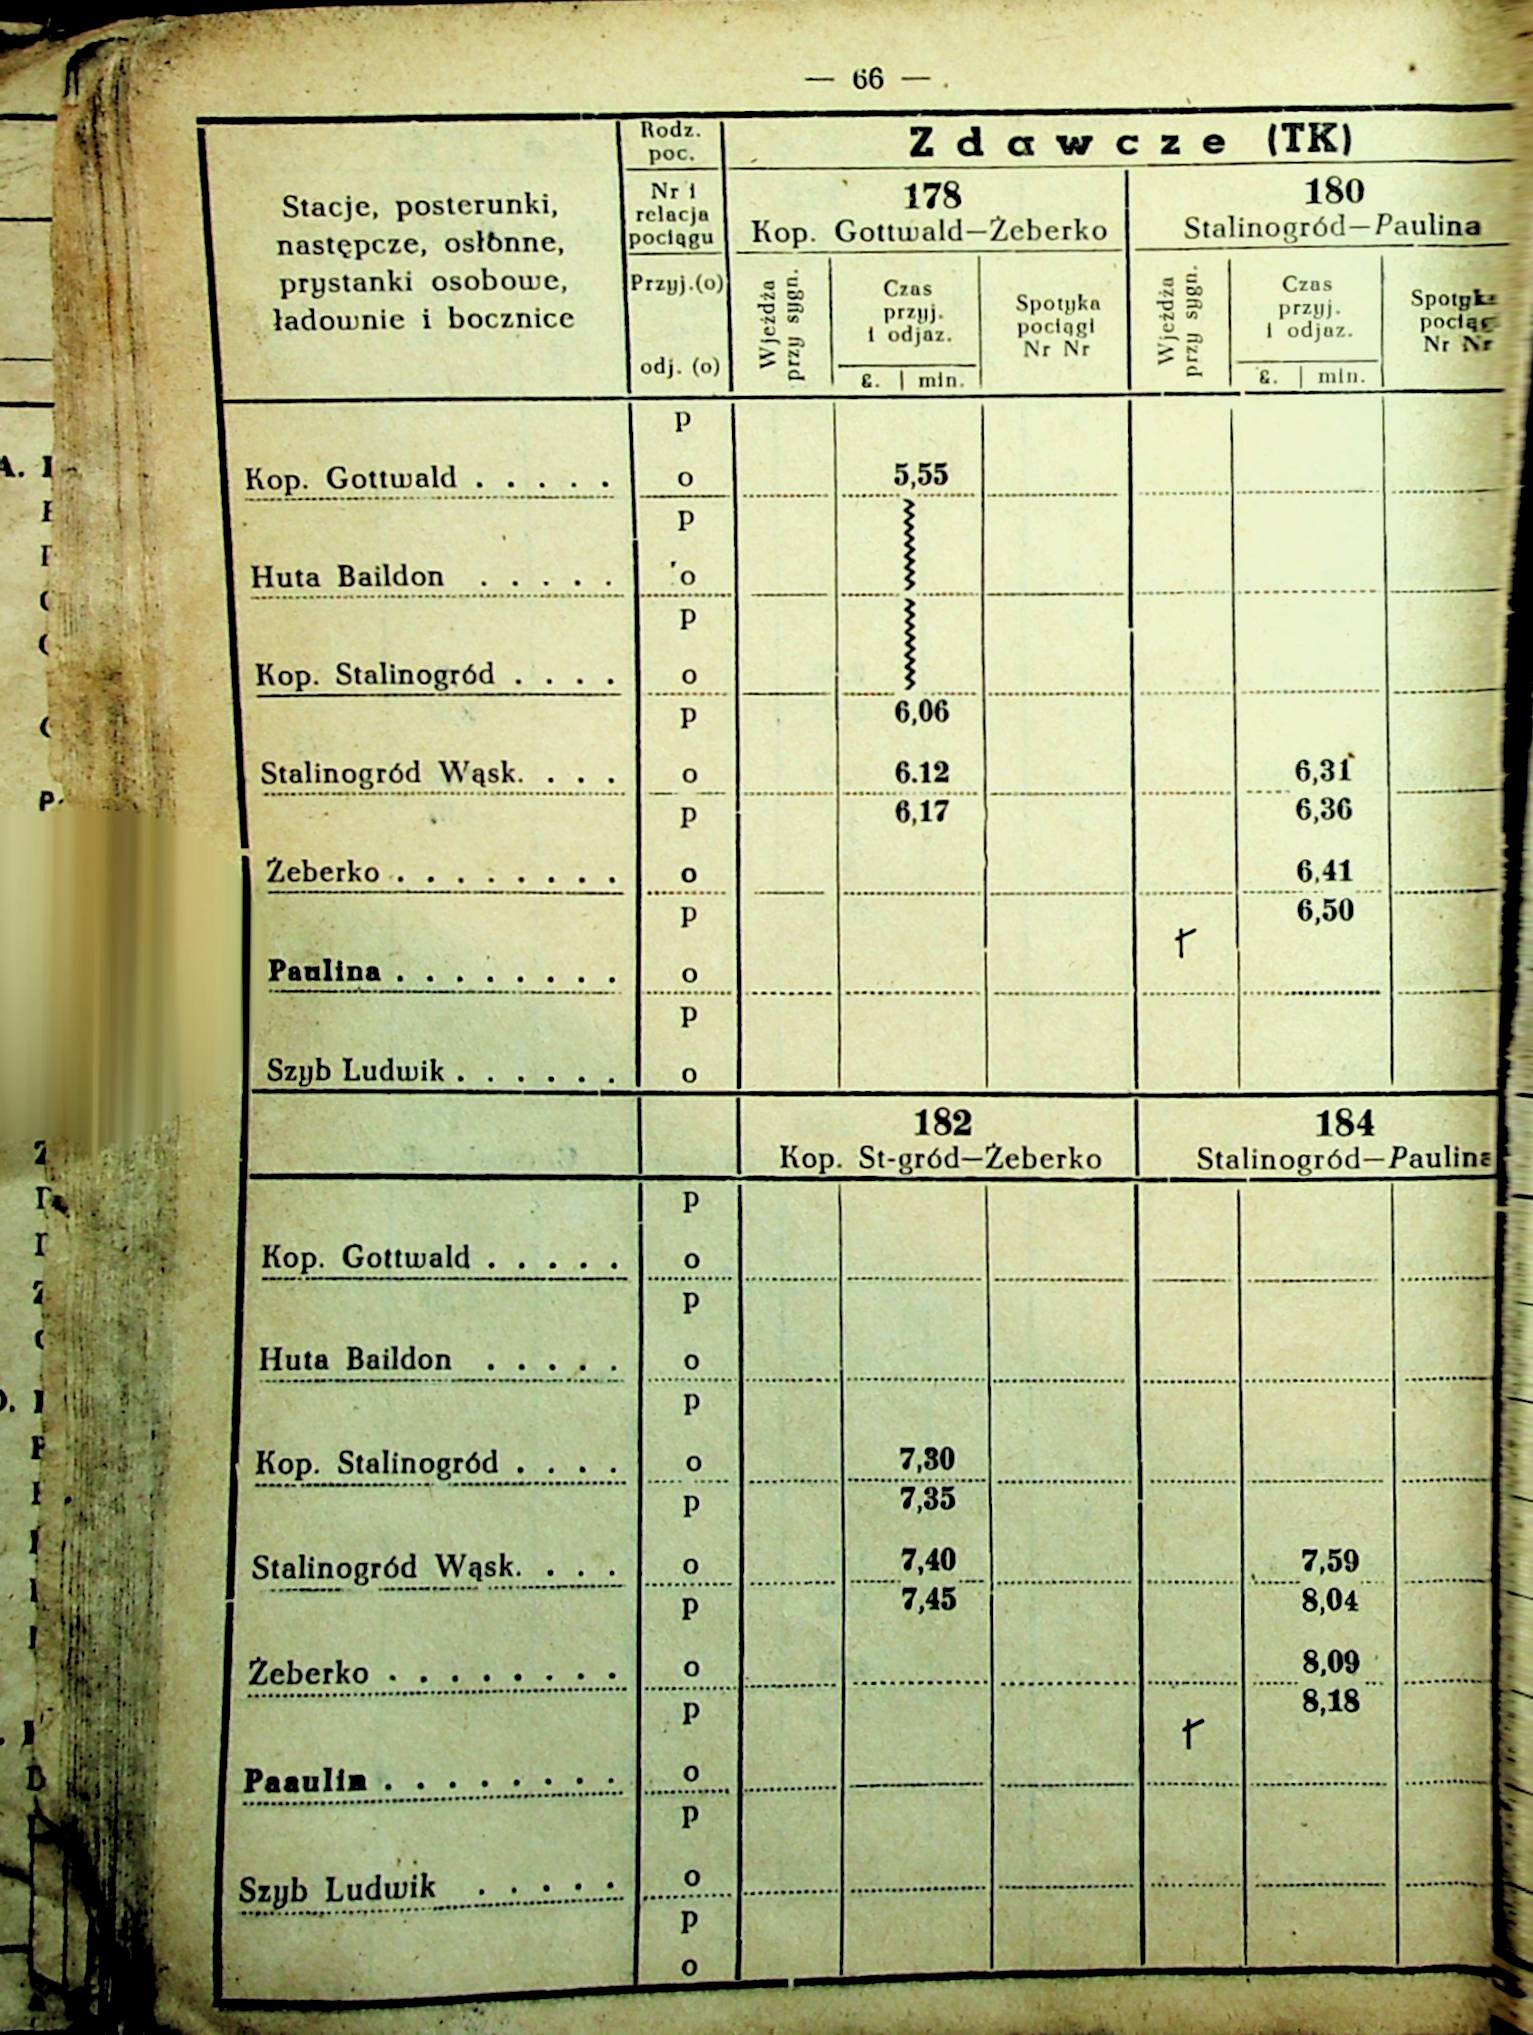 — 66 —
Stacje, posterunki,
następcze, osłonne,
prystanki osobowe,
ładownie i bocznice
Rodz.
poc.
Nr i
relacja
pociągu
Przyj.(o)
odj. (o)
Zdawcze (TK)
178
Kop. Gottwald—Żeberko
180
Stalinogród—Paulina
Wjeżdża
przy sygn.
Czas
przyj.
i odjaz.
g. | min.
Spotyka
pociągi
Nr Nr
Wjeżdża
przy sygn.
Czas
przyj.
i odjaz.
g. | min.
Spotyka
Nr Nr
p
Kop. Gottwald . . . . . o 5,55
p
Huta Baildon . . . . . o
p
Kop. Stalinogród . . . . o
p 6,06
Stalinogród Wąsk. . . . o 6.12 6,31
p 6,17 6,36
Żeberko . . . . . . . . o 6,41
p 6,50
Paulina . . . . . . . . o
p
Szyb Ludwik . . . . . . o
182
Kop. St-gród—Żeberko
184
Stalinogród—Paulina
p
Kop. Gottwald . . . . . o
p
Huta Baildon . . . . . o
p
Kop. Stalinogród . . . . o 7,30
p 7,35
Stalinogród Wąsk. . . . o 7,40 7,59
p 7,45 8,04
Żeberko . . . . . . . . o 8,09
p 8,18
Paaulin . . . . . . . . o
p
Szyb Ludwik . . . . . o
p
o